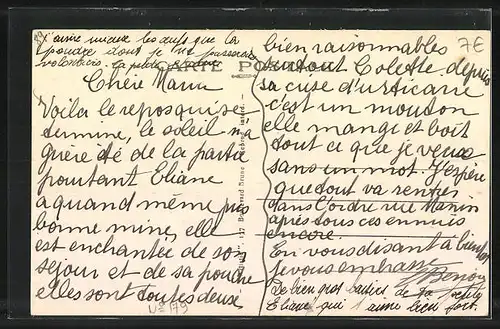 J'aime mieux les œufs que la
poudre dont je me passerais
volontiers. la petite
CARTE POSTALE
Chérie Mamn
Voila le repos qui se
termine, le soleil n'a
guère été de la partie
pourtant Eliane
a quand même pris
bonne mine, elle
est enchantée de son
séjour et de sa
elles sont toutes deux
N° 179
7€
bien raisonnables
surtout Colette depuis
sa crise d'urticaire
c'est un mouton
elle mange et boit
tout ce que je veux
sans un mot. J'espère
que tout va rentrer
dans l'ordre rue Manin
après tous ces ennuis
encore.
En vous disant à bientôt
je vous embrasse
De bien gros baisers de ta petite
Eliane qui t'aime bien fort.